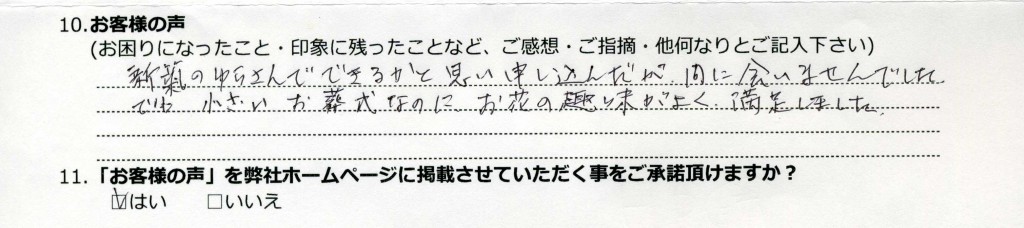 10.お客様の声
(お困りになったこと・印象に残ったことなど、ご感想・ご指摘・他何なりとご記入下さい)
のゆうさんでできるかと思い申し込んだが、間に会いませんでした
でも小さいお葬式なのにお花の趣味がよく満足しました。
11.「お客様の声」を弊社ホームページに掲載させていただく事をご承諾頂けますか？
☑はい □いいえ